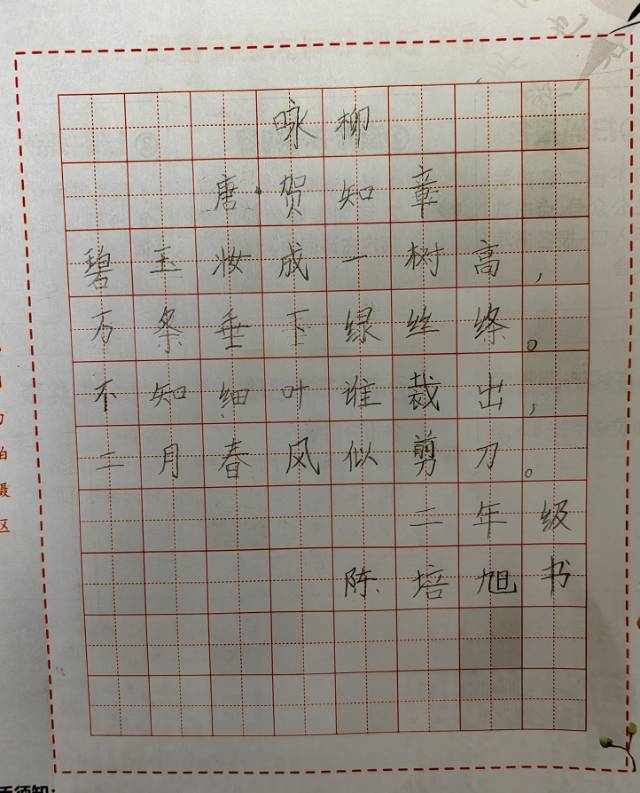 咏柳
唐·贺知章
碧玉妆成一树高,
万条垂下绿丝绦。
不知细叶谁裁出,
二月春风似剪刀。
二年级
陈培旭书
区
须知: